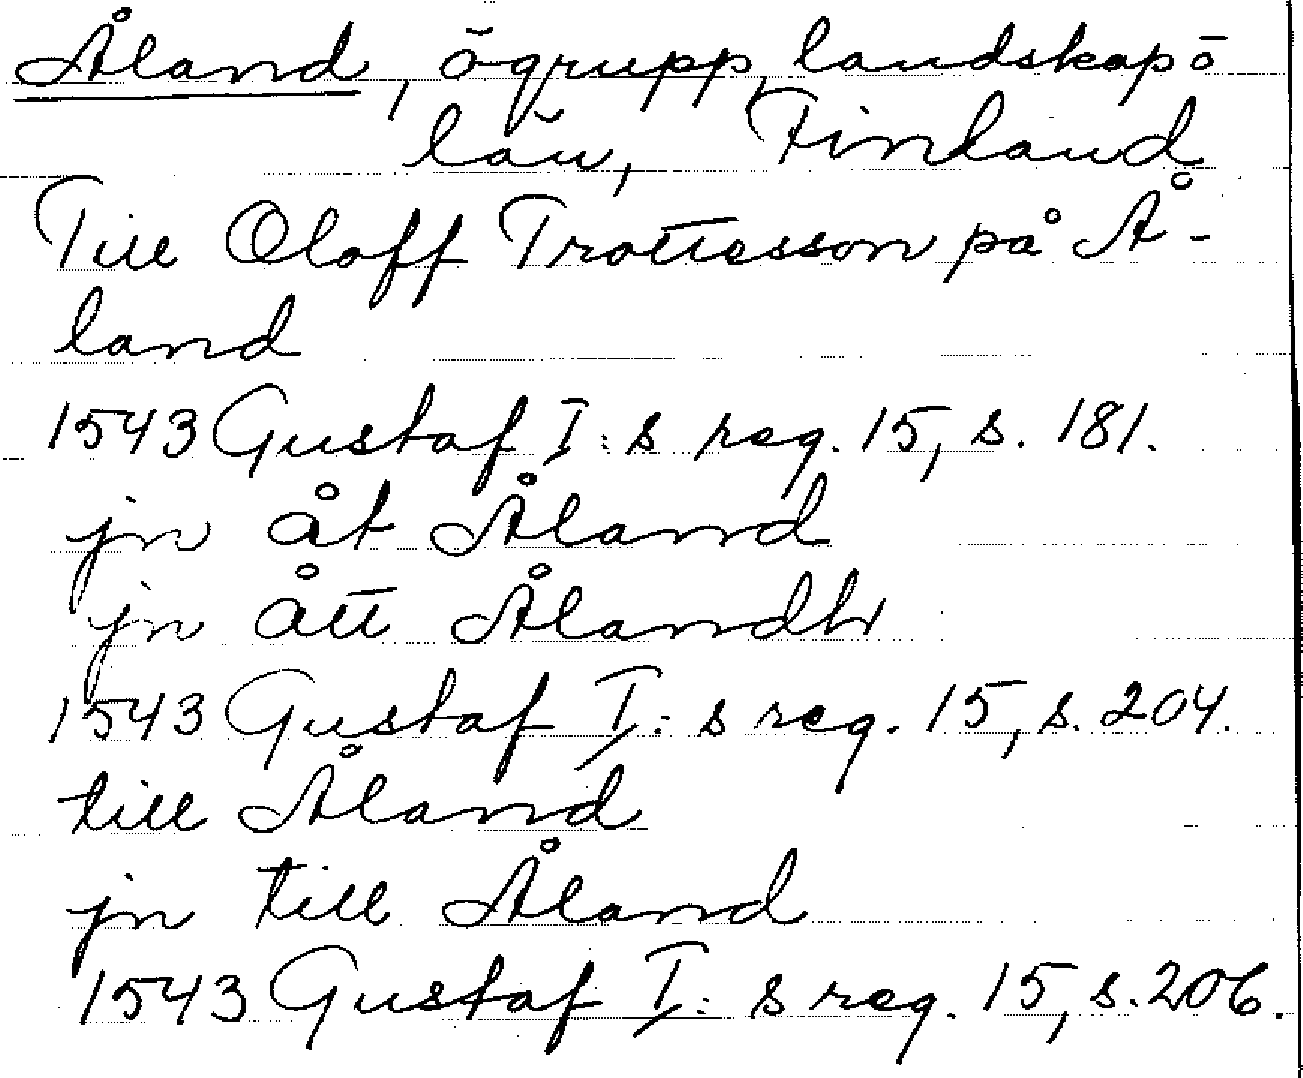 Åland, ögrupp, landskap o
län, Finland
Till Oloff Trottesson på Å-
land
1543 Gustaf I:s reg. 15, s. 181.
jn åt Åland
jn ått Ålandh
1543 Gustaf I:s reg. 15, s. 204.
till Åland
jn till Åland
1543 Gustaf I:s reg. 15, s. 206.